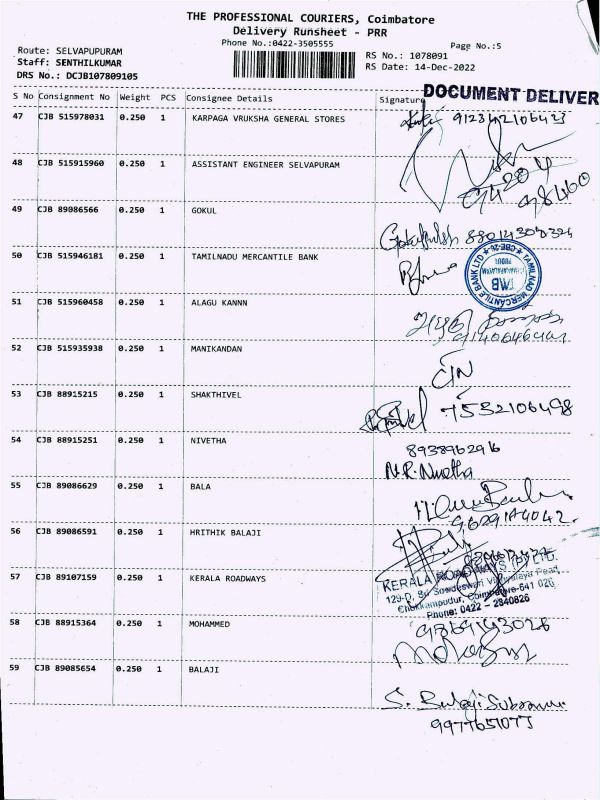 THE PROFESSIONAL COURIERS, Coimbatore
Delivery Runsheet - PRR
Phone No.:0422-3505555
Page No.:5
Route: SELVAPUPURAM
Staff: SENTHILKUMAR
DRS No.: DCJB107809105
RS No.: 1078091
RS Date: 14-Dec-2022
DOCUMENT DELIVER
S No Consignment No Weight PCS Consignee Details Signature
47 CJB 515978031 0.250 1 KARPAGA VRUKSHA GENERAL STORES
48 CJB 515915960 0.250 1 ASSISTANT ENGINEER SELVAPURAM
49 CJB 89086566 0.250 1 GOKUL
50 CJB 515946181 0.250 1 TAMILNADU MERCANTILE BANK
TAMIL NAD MERCANTILE BANK LTD
TMB
51 CJB 515960458 0.250 1 ALAGU KANNN
52 CJB 515935938 0.250 1 MANIKANDAN
53 CJB 88915215 0.250 1 SHAKTHIVEL
7532106498
54 CJB 88915251 0.250 1 NIVETHA
8938962916
N.R. Nivetha
55 CJB 89086629 0.250 1 BALA
56 CJB 89086591 0.250 1 HRITHIK BALAJI
57 CJB 89107159 0.250 1 KERALA ROADWAYS
KERALA ROADWAYS (P) LTD.
129-D, Sri Sowdeswari Vidyalaya Road,
Chokkampudur, Coimbatore-641 026
Phone: 0422 - 2340826
58 CJB 88915364 0.250 1 MOHAMMED
59 CJB 89085654 0.250 1 BALAJI